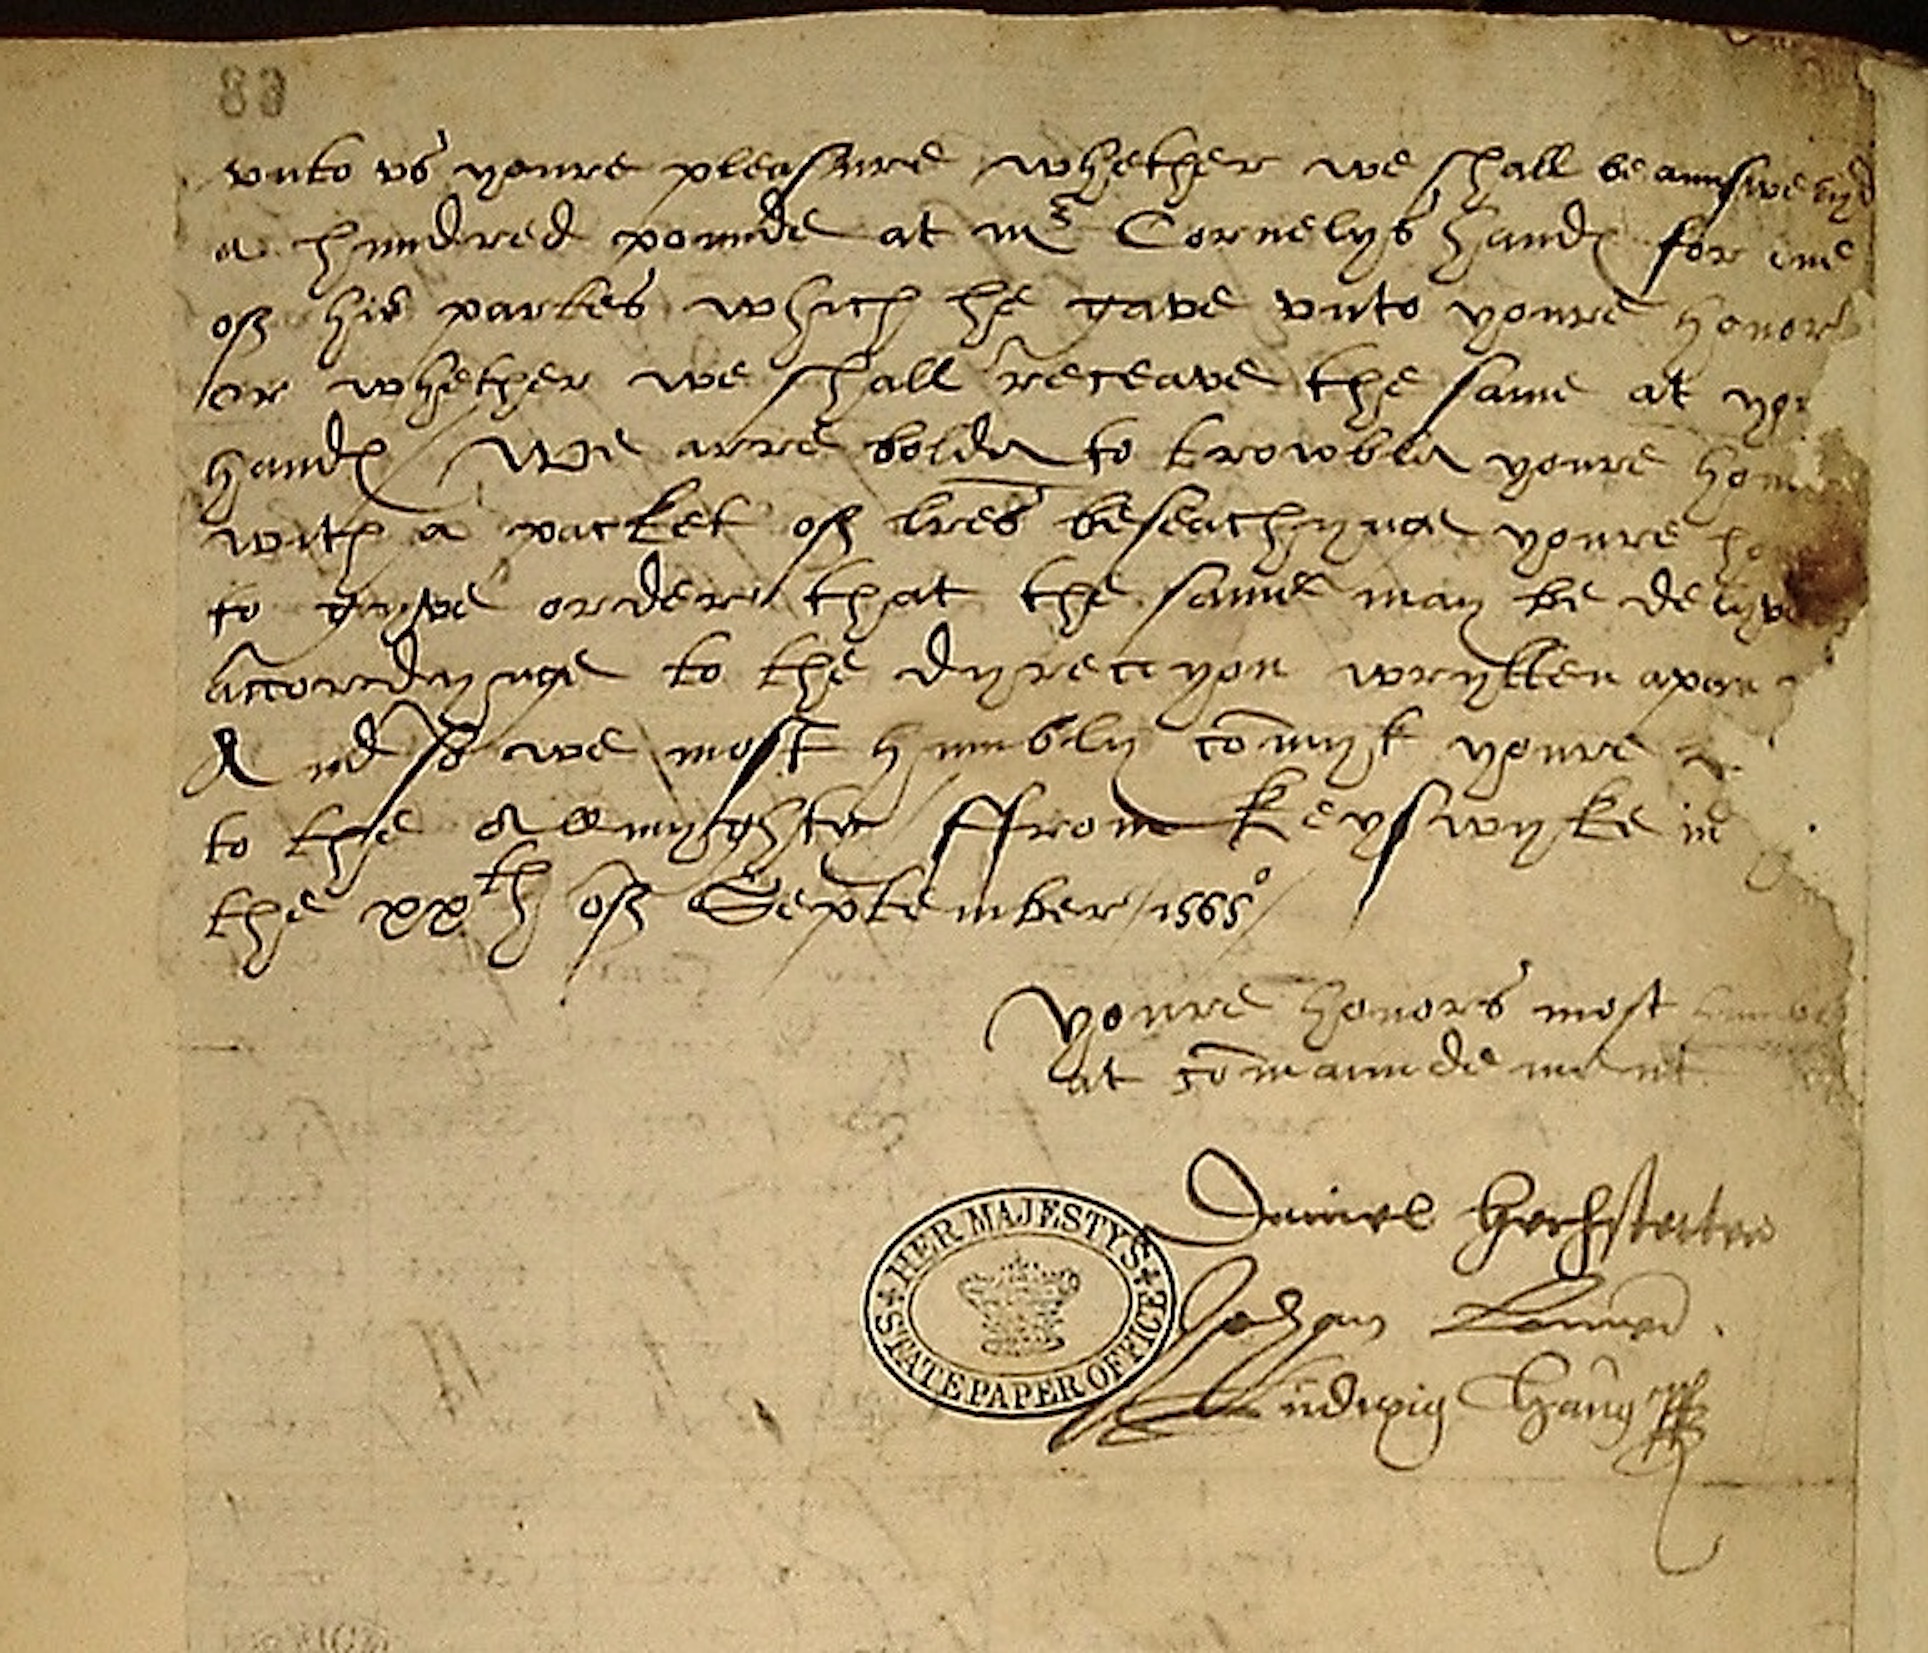 89
vnto vs youre pleasure whether we shall be aunswe
a hundred pounde at mr Cornelys hand for one
of his partes which he gave vnto youre honor
or whether we shall receave the same at yo
hand / We arre bolde to trowble youre hon
with a packet of lres beseachynge youre ho
to gyve order that the same may be delyve
accordynge to the dyreccyon wrytten apon
And so we most humbly comyt youre
to the allmyghty / ffrom Keyswyke in
the xxth of September / 1565° /
Youre honors most
at commaundement
Daniel Hechstetter
Johan
Ludwig Haug
HER MAJESTY'S STATE PAPER OFFICE